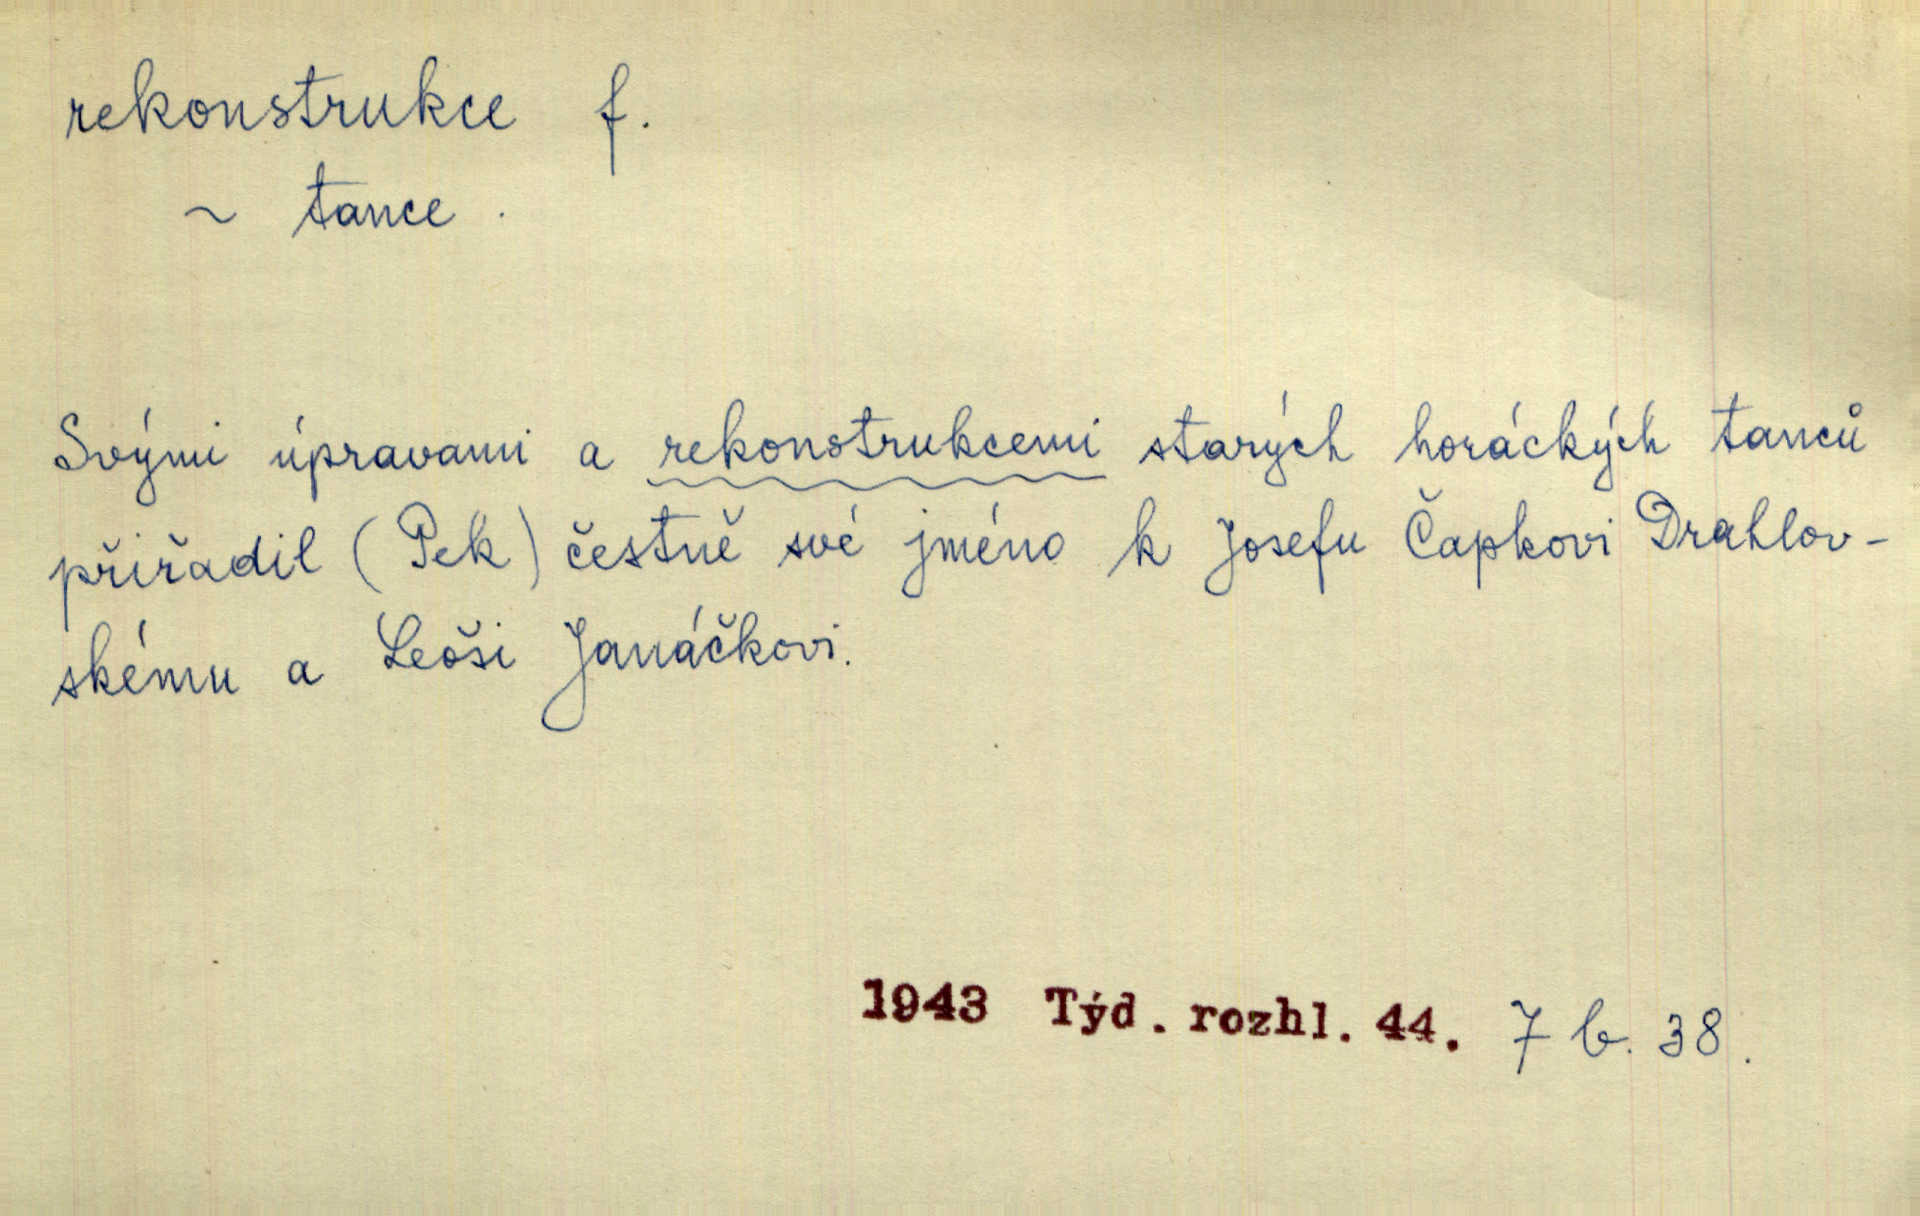 rekonstrukce f.
~ tance.
Svými úpravami a rekonstrukcemi starých horáckých tanců
přiřadil (Pek) čestně své jméno k Josefu Čapkovi Drahlov-
skému a Leoši Janáčkovi.
1943 Týd. rozhl. 44. 7 b. 38.